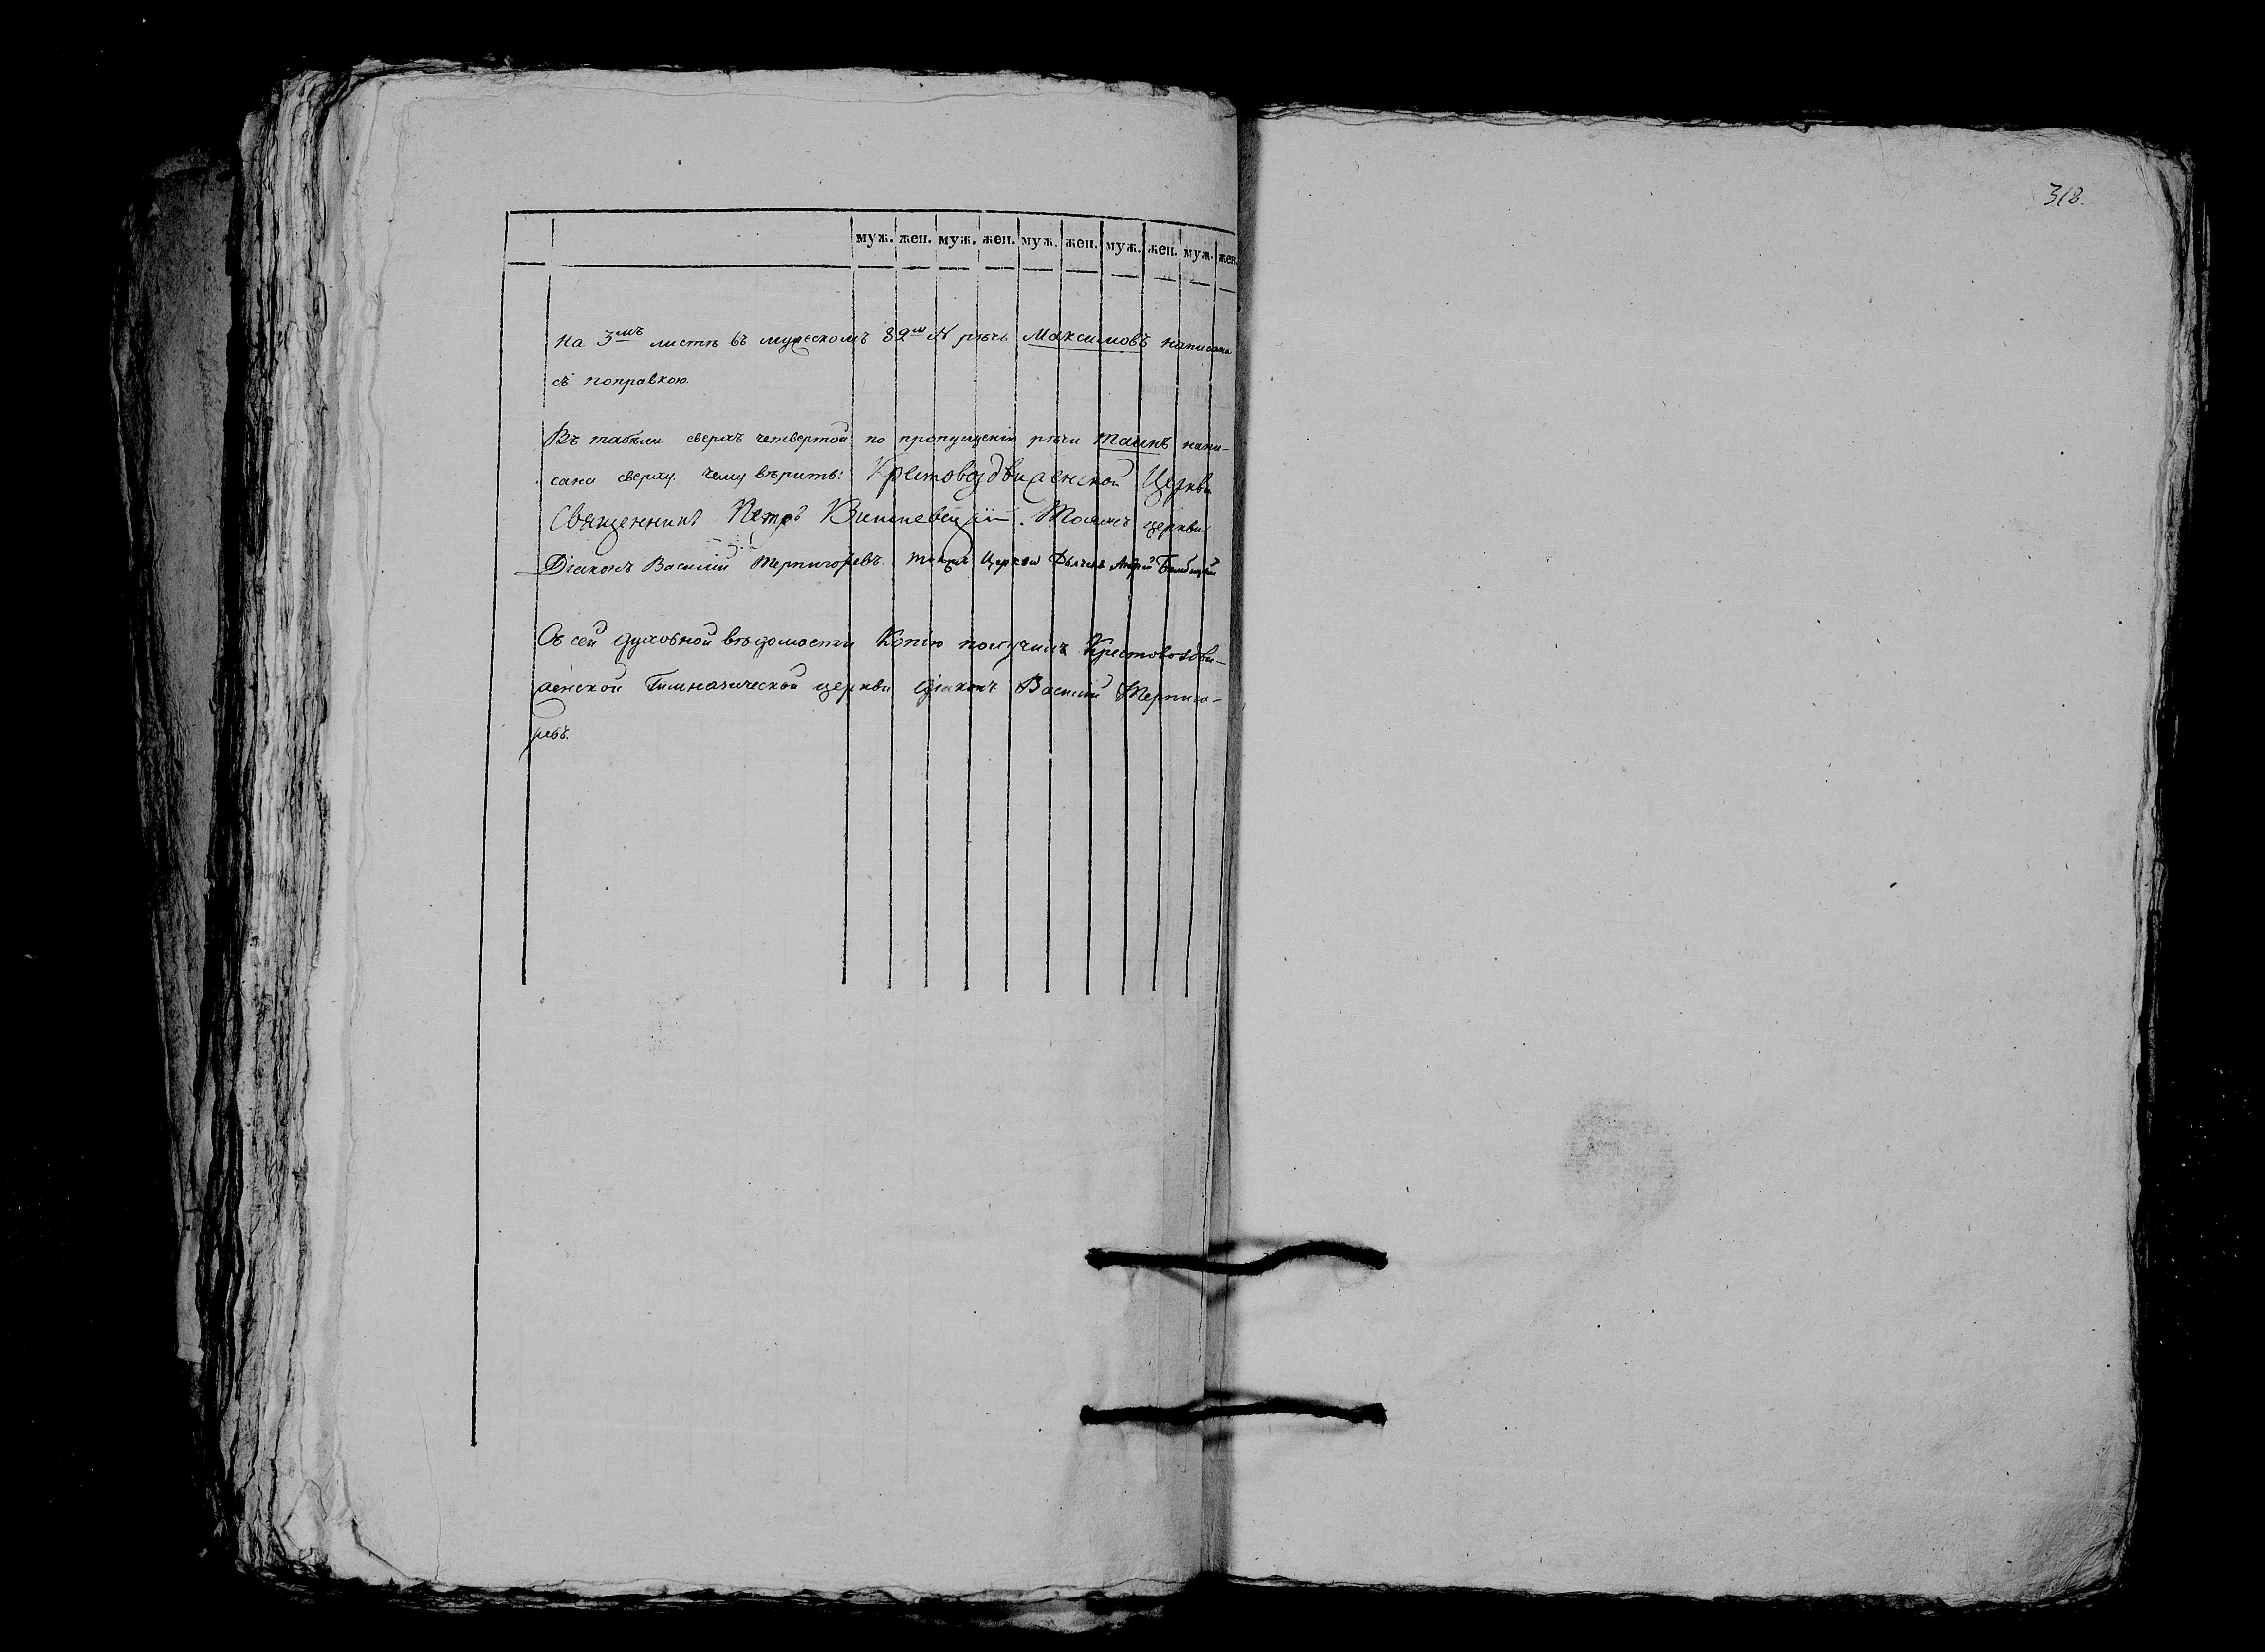 муж. жен. муж. жен. муж. жен. муж. жен. муж. жен.
318.
на 3мъ листѣ въ мужескомъ 82м N рѣчь Максимовъ написана
съ поправкою.
Въ табели сверхъ четвертой по пропущенію рѣчи таинъ напи-
сана сверху. чему вѣрить: Крестовоздвиженской Церкви
Священникъ Петръ Вишневецкій. Тояжъ церкви
Діаконъ Василій Терпигоревъ. Тояжъ Церкви Дьячекъ Андрей
Съ сей духовной вѣдомости Копію получилъ Крестовоздви-
женской Гимназической церкви діаконъ Василій Терпиго-
ревъ.